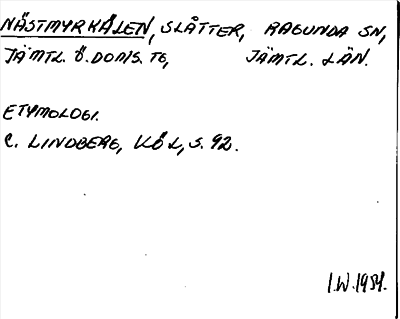 NÄSTMYRKÅLEN, SLÅTTER, RAGUNDA SN,
JÄMTL. Ö. DOMS. TG, JÄMTL. LÄN.
ETYMOLOGI.
C. LINDBERG, KÖL, S. 92.
I.W. 1954.